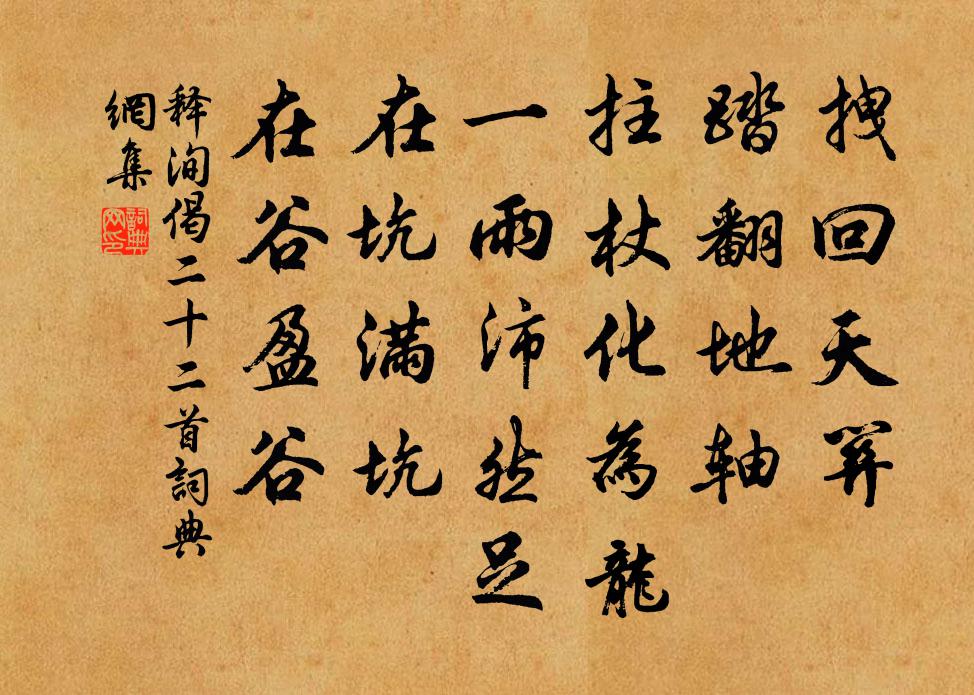 拽回天關
踏翻地轴
拄杖化為龍
一雨沛然足
在坑滿坑
在谷盈谷
释洵偈二十二首詞典
網集
詞典
网印